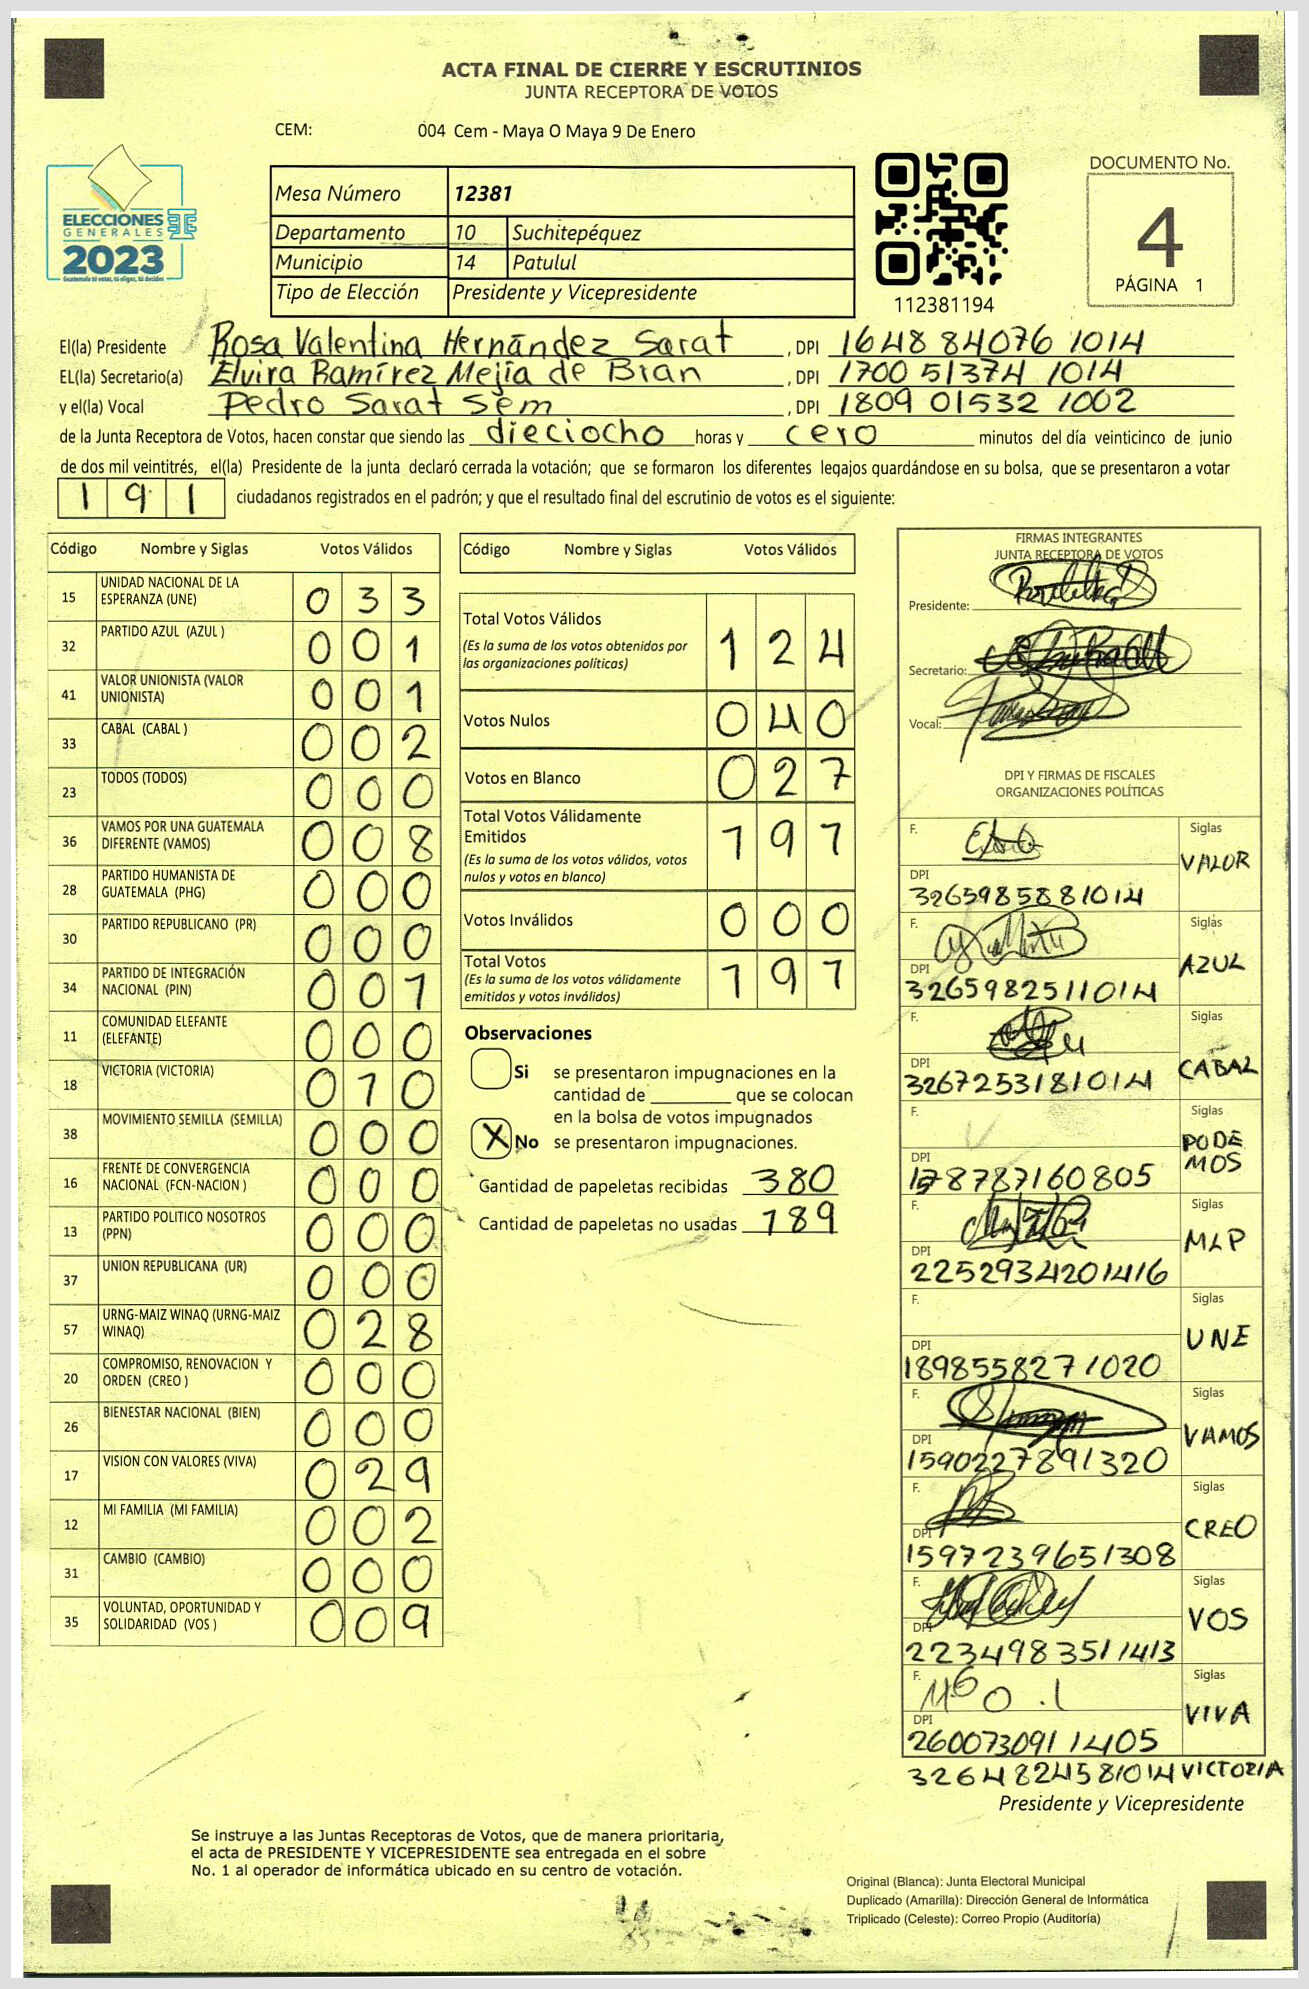 ACTA FINAL DE CIERRE Y ESCRUTINIOS
JUNTA RECEPTORA DE VOTOS
CEM: 004 Cem - Maya O Maya 9 De Enero
ELECCIONES
GENERALES
2023
Guatemala tú votas, tú eliges, tú decides
Mesa Número 12381
Departamento 10 Suchitepéquez
Municipio 14 Patulul
Tipo de Elección Presidente y Vicepresidente
112381194
DOCUMENTO No.
4
PÁGINA 1
El(la) Presidente Rosa Valentina Hernández Sarat, DPI 1648 84076 1014
EL(la) Secretario(a) Elvira Ramírez Mejía de Bran, DPI 1700 51374 1014
y el(la) Vocal Pedro Sarat Sem, DPI 1809 01532 1002
de la Junta Receptora de Votos, hacen constar que siendo las dieciocho horas y cero minutos del día veinticinco de junio
de dos mil veintitrés, el(la) Presidente de la junta declaró cerrada la votación; que se formaron los diferentes legajos guardándose en su bolsa, que se presentaron a votar
191 ciudadanos registrados en el padrón; y que el resultado final del escrutinio de votos es el siguiente:
Código Nombre y Siglas Votos Válidos
15 UNIDAD NACIONAL DE LA ESPERANZA (UNE) 033
32 PARTIDO AZUL (AZUL ) 001
41 VALOR UNIONISTA (VALOR UNIONISTA) 001
33 CABAL (CABAL ) 002
23 TODOS (TODOS) 000
36 VAMOS POR UNA GUATEMALA DIFERENTE (VAMOS) 008
28 PARTIDO HUMANISTA DE GUATEMALA (PHG) 000
30 PARTIDO REPUBLICANO (PR) 000
34 PARTIDO DE INTEGRACIÓN NACIONAL (PIN) 001
11 COMUNIDAD ELEFANTE (ELEFANTE) 000
18 VICTORIA (VICTORIA) 010
38 MOVIMIENTO SEMILLA (SEMILLA) 000
16 FRENTE DE CONVERGENCIA NACIONAL (FCN-NACION ) 000
13 PARTIDO POLITICO NOSOTROS (PPN) 000
37 UNION REPUBLICANA (UR) 000
57 URNG-MAIZ WINAQ (URNG-MAIZ WINAQ) 028
20 COMPROMISO, RENOVACION Y ORDEN (CREO ) 000
26 BIENESTAR NACIONAL (BIEN) 000
17 VISION CON VALORES (VIVA) 029
12 MI FAMILIA (MI FAMILIA) 002
31 CAMBIO (CAMBIO) 000
35 VOLUNTAD, OPORTUNIDAD Y SOLIDARIDAD (VOS ) 009
Código Nombre y Siglas Votos Válidos
Total Votos Válidos 124
(Es la suma de los votos obtenidos por
las organizaciones politicas)
Votos Nulos 040
Votos en Blanco 027
Total Votos Válidamente
Emitidos 191
(Es la suma de los votos válidos, votos
nulos y votos en blanco)
Votos Inválidos 000
Total Votos 191
(Es la suma de los votos válidamente
emitidos y votos inválidos)
Observaciones
Si se presentaron impugnaciones en la
cantidad de ________ que se colocan
en la bolsa de votos impugnados
X No se presentaron impugnaciones.
Cantidad de papeletas recibidas 380
Cantidad de papeletas no usadas 189
FIRMAS INTEGRANTES
JUNTA RECEPTORA DE VOTOS
Presidente:
Secretario:
Vocal:
DPI Y FIRMAS DE FISCALES
ORGANIZACIONES POLÍTICAS
F. Siglas
VALOR
DPI
3265985881014
F. Siglas
AZUL
DPI
3265982511014
F. Siglas
CABAL
DPI
3267253181014
F. Siglas
PODE
MOS
DPI
1578787160805
F. Siglas
MLP
DPI
2252934201416
F. Siglas
UNE
DPI
1898558271020
F. Siglas
VAMOS
DPI
1590227891320
F. Siglas
CREO
DPI
1597239651308
F. Siglas
VOS
DPI
2234983511413
F. Siglas
VIVA
DPI
2600730911405
3264824581014 VICTORIA
Presidente y Vicepresidente
Se instruye a las Juntas Receptoras de Votos, que de manera prioritaria,
el acta de PRESIDENTE Y VICEPRESIDENTE sea entregada en el sobre
No. 1 al operador de informática ubicado en su centro de votación.
Original (Blanca): Junta Electoral Municipal
Duplicado (Amarilla): Dirección General de Informática
Triplicado (Celeste): Correo Propio (Auditoría)